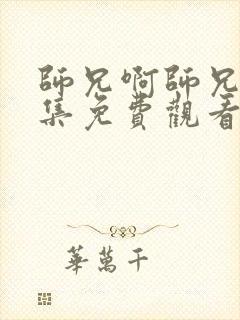 師兄啊師兄
集免費觀看
華萬千